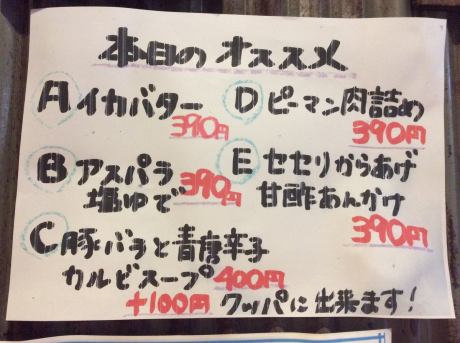 本日のオススメ
A イカバター 390円
B アスパラ
塩ゆで 390円
C 豚バラと青唐辛子
カルビスープ 400円
+100円 クッパに出来ます!
D ピーマン肉詰め
390円
E セセリからあげ
甘酢あんかけ
390円